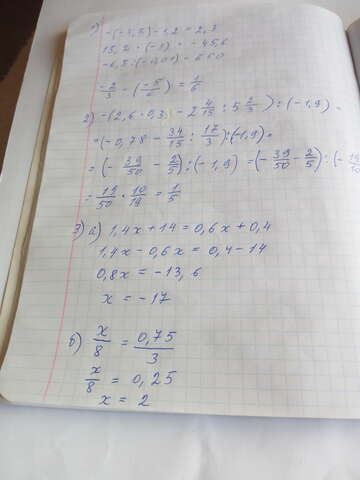 1) -(-3,5)-1,2 = 2,3
15,2 · (-3) = -45,6
-6,5 : (-0,01) = 650
-2/3 - (-5/6) = 1/6
2) -(2,6 · 0,3) - 2 4/15 : 5 2/3) : (-1,9) =
= (-0,78 - 34/15 : 17/3) : (-1,9) =
= (-39/50 - 2/5) : (-1,9) = (-39/50 - 2/5) : (-19/10
= 19/50 · 10/19 = 1/5
3) а) 1,4x + 14 = 0,6x + 0,4
1,4x - 0,6x = 0,4 - 14
0,8x = -13,6
x = -17
б) x/8 = 0,75/3
x/8 = 0,25
x = 2